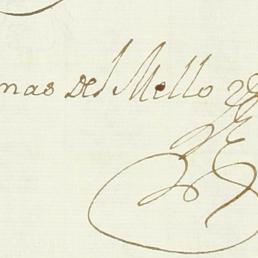 mas del Mello